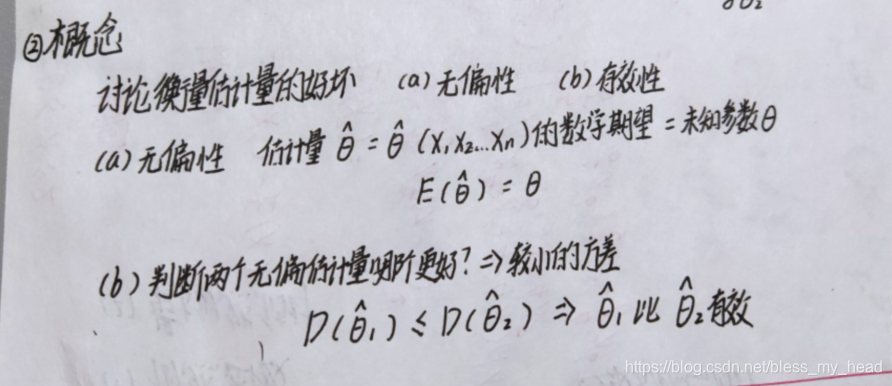 ②概念
讨论衡量估计量的好坏 (a)无偏性 (b)有效性
(a)无偏性 估计量 θ̂ = θ̂ (X₁X₂...Xn)的数学期望 = 未知参数θ
E(θ̂) = θ
(b)判断两个无偏估计量哪个更好? ⇒ 较小的方差
D(θ̂₁) ≤ D(θ̂₂) ⇒ θ̂₁ 比 θ̂₂有效
https://blog.csdn.net/bless_my_head